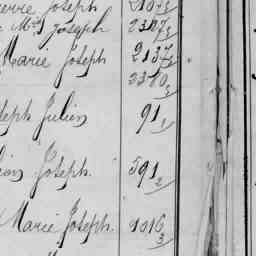 Joseph 2107/3
Mie Joseph 2307/3
Marie Joseph 2137/3
2370/3
Julien 91/1
Joseph. 591/2
Marie Joseph. 1016/3